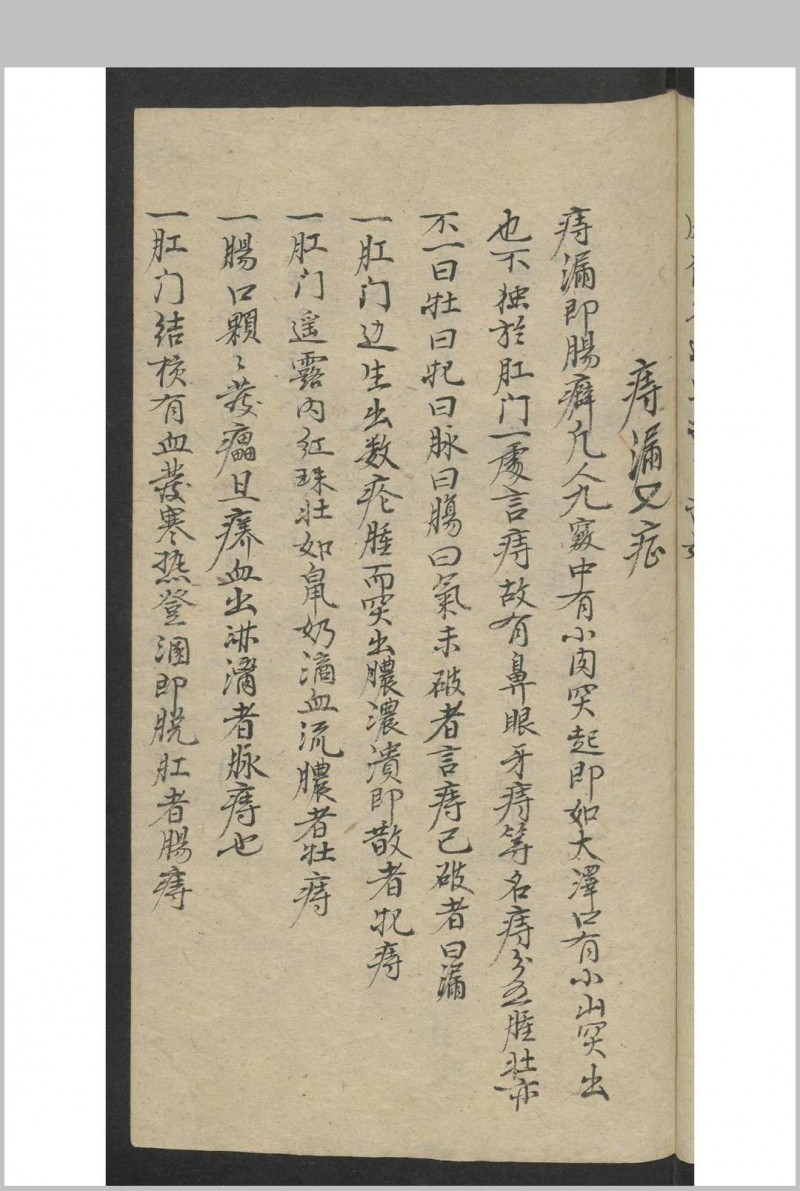 痔漏又症
痔漏即腸癖凡人九竅中有小肉突起即如大澤口有小山突出
也不独於肛门一處言痔故有鼻眼牙痔等名痔分五腫壮亦
不一曰牡曰牝曰脉曰腸曰氣未破者言痔已破者曰漏
一肛门边生出数疮腫而突出膿濃潰即散者牝痔
一肛门遥露内红珠壮如鼠奶滴血流膿者牡痔
一腸口顆〻發瘟且痒血出淋漓者脉痔也
一肛门结核有血發寒热登溷即脱肛者腸痔